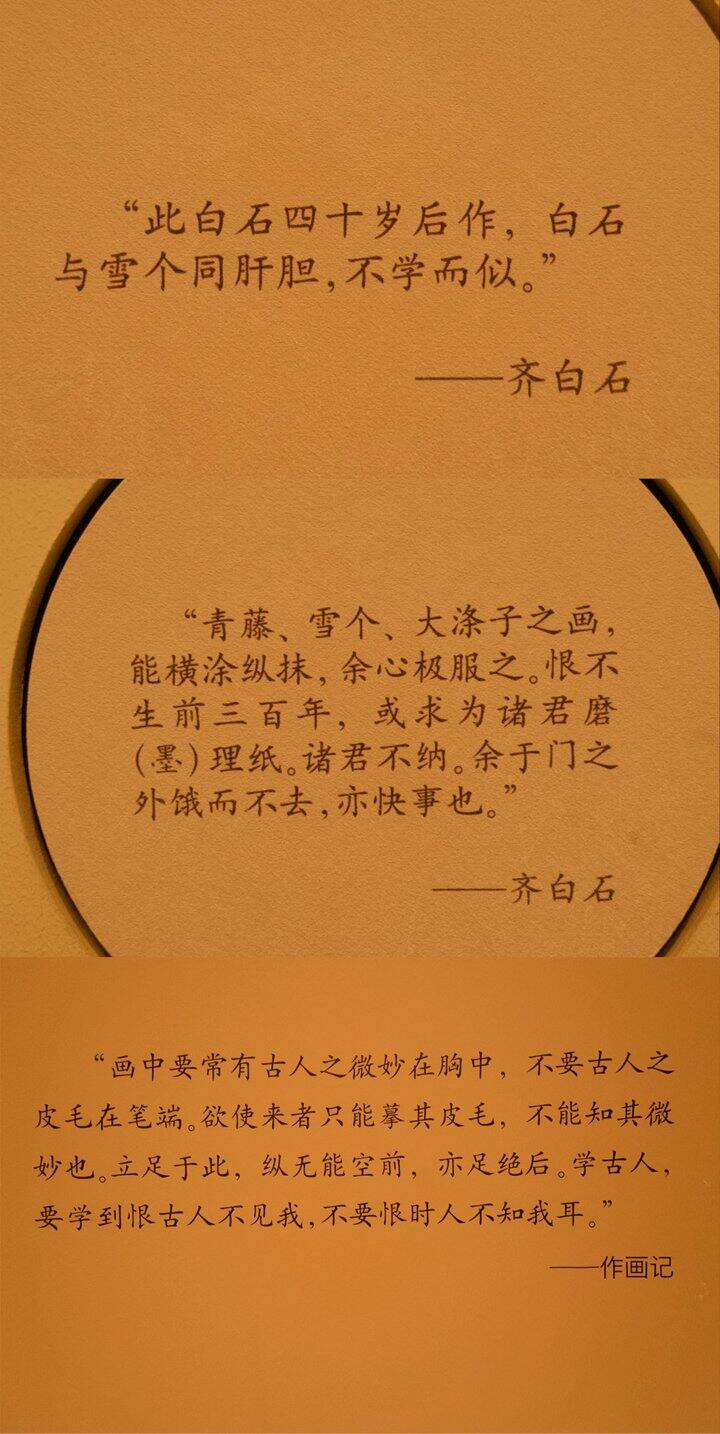 “此白石四十岁后作，白石
与雪个同肝胆，不学而似。”
——齐白石
“青藤、雪个、大涤子之画，
能横涂纵抹，余心极服之。恨不
生前三百年，或求为诸君磨
（墨）理纸。诸君不纳。余于门之
外饿而不去，亦快事也。”
——齐白石
“画中要常有古人之微妙在胸中，不要古人之
皮毛在笔端。欲使来者只能摹其皮毛，不能知其微
妙也。立足于此，纵无能空前，亦足绝后。学古人，
要学到恨古人不见我，不要恨时人不知我耳。”
——作画记